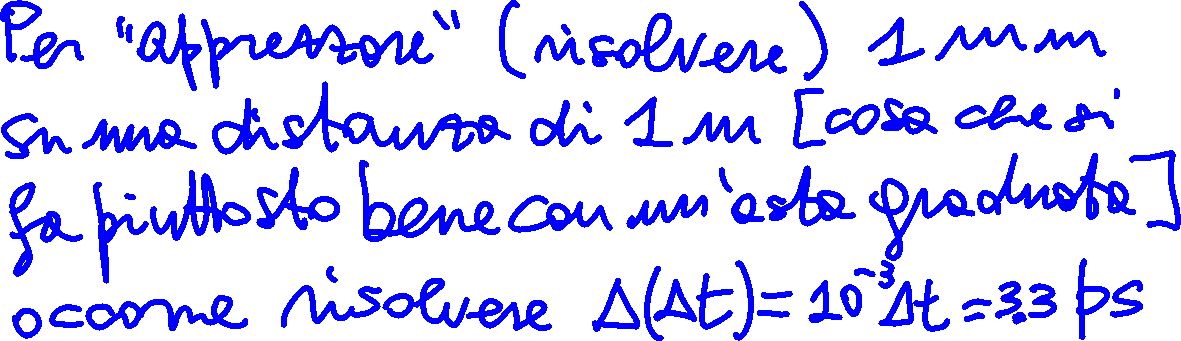 Per "apprezzare" (risolvere) 1 mm
su una distanza di 1 m [cosa che si
fa piuttosto bene con un'asta graduata]
occorre risolvere Δ(Δt)=10⁻³Δt=3.3 ps